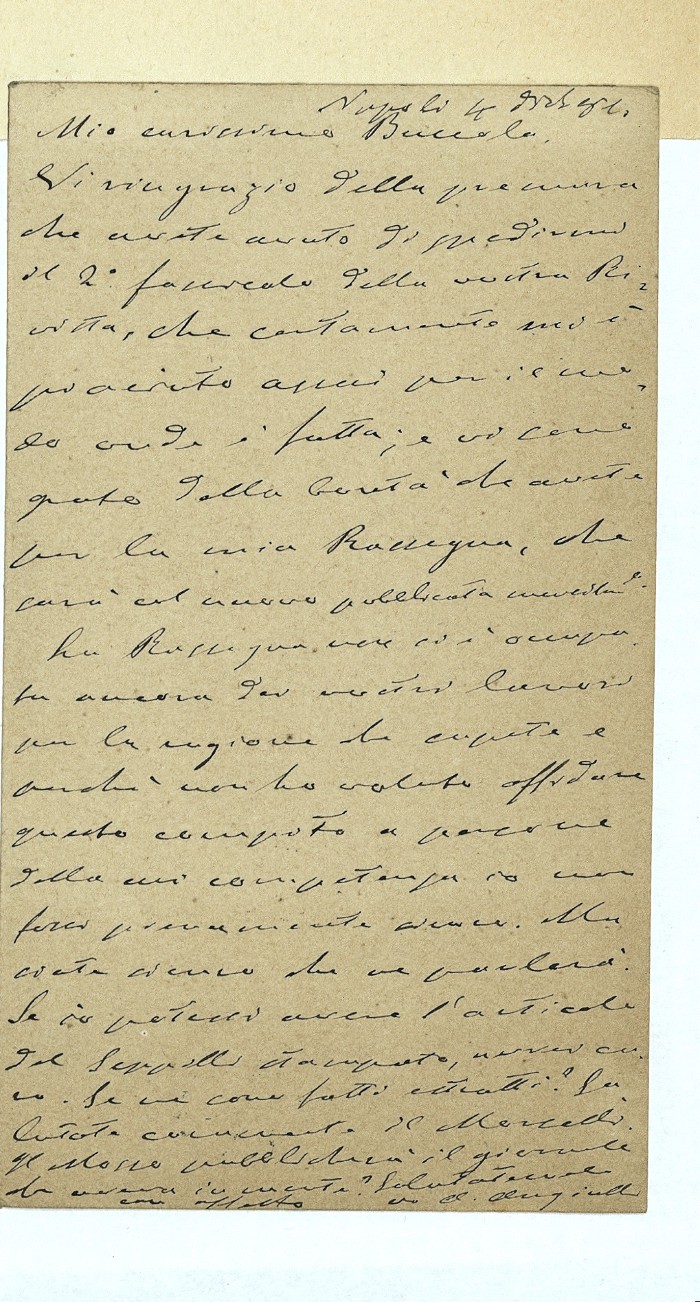 Napoli 4 dicb 81.
Mio carissimo Buccola,
Vi ringrazio della premura
che avete avuto di spedirmi
il 2º fascicolo della vostra Ri-
vista, che certamente mi è
piaciuto assai per il mo-
do onde è fatta; e vi sono
grato della bontà che avete
per la mia Rassegna, che
sarà col nuovo pubblicata
La Rassegna non si è occupa-
ta ancora dei vostri lavori
per la ragione che sapete e
perchè non ho voluto affidare
questo compito a persone
della cui competenza io non
fossi pienamente sicuro. Ma
siate sicuro che ne parlerà.
Se io potessi avere l'articolo
del Seppilli stampato, l'avrei ca-
ro. Se ne sono fatti estratti? Sa-
lutate caramente il Morselli.
Il Mosso pubblicherà il giornale
che aveva in mente? Salutatemelo
con affetto vo A. Angiulli